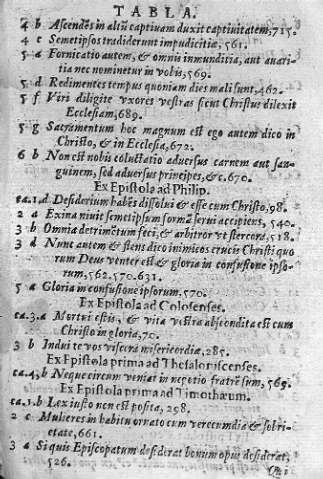 TABLA.
4 b Ascendēs in altū captivam duxit captivitatem, 715.
4 c Semetipsos tradiderunt impudicitiæ, 561.
5 a Fornicatio autem, & omnis inmunditia, aut avari-
tia nec nominetur in vobis, 569.
5 d Redimentes tempus quoniam dies mali sunt, 462.
5 f Viri diligite vxores vestras sicut Christus dilexit
Ecclesiam, 689.
5 g Sacramentum hoc magnum est ego autem dico in
Christo, & in Ecclesia, 672.
6 b Non est nobis coluctatio adversus carnem aut san-
guinem, sed adversus principes, &c. 670.
Ex Epistola ad Philip.
ca. 1. d Desiderium habēs dissolui & esse cum Christo, 98.
2 a Exinaniuit semetipsum formā serui accipiens, 540.
3 b Omnia detrimētum feci, & arbitror vt stercora, 518.
3 d Nunc autem & flens dico inimicos crucis Christi quo
rum Deus venter est & gloria in confusione ipso-
rum, 562. 570. 631.
5 a Gloria in confusione ipsorum, 570.
Ex Epistola ad Colosenses.
ca. 3. a Mortui estis, & vita vestra abscondita est cum
Christo in gloria, 70.
3 b Induite vos viscera misericordiæ, 285.
Ex Epistola prima ad Thesaloniscenses.
ca. 4, b Neque circumveniat in negotio fratrē suum, 569.
Ex Epistola prima ad Timothæum.
ca. 1. b Lex iusto non est posita, 298.
2 c Mulieres in habitu ornato cum verecundia & sobri-
etate, 661.
3 a Si quis Episcopatum desiderat bonum opus desiderat,
526.